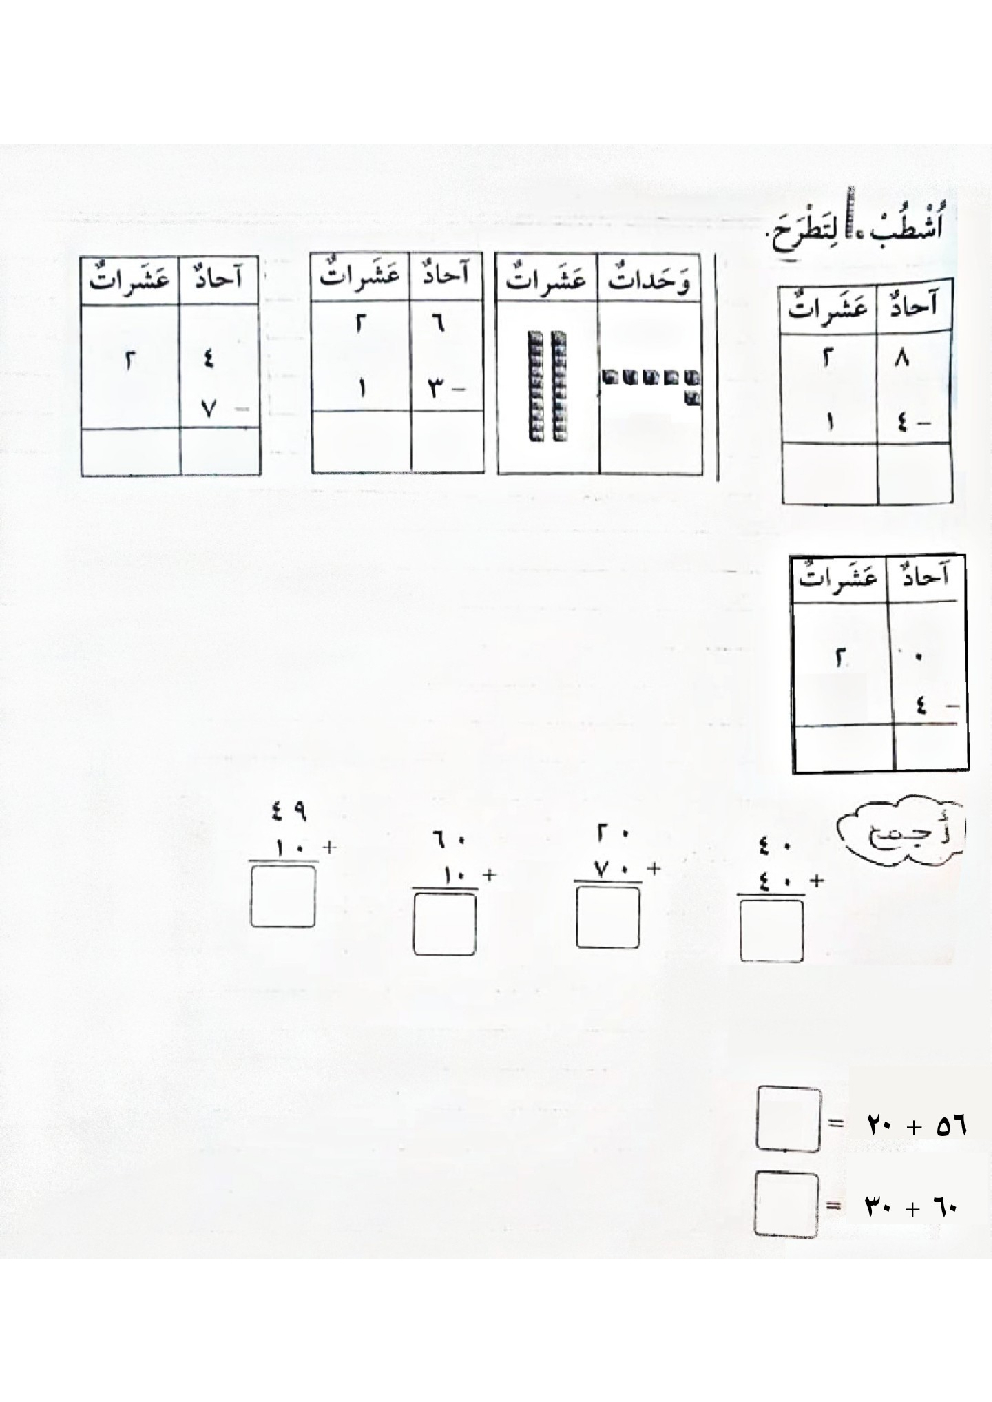 أُشْطُبْ لِتَطْرَحَ.
آحادٌ عَشَراتٌ
٨ ٢
− ٤ ١
وَحَداتٌ عَشَراتٌ
آحادٌ عَشَراتٌ
٦ ٢
− ٣ ١
آحادٌ عَشَراتٌ
٤ ٢
− ٧
آحادٌ عَشَراتٌ
٠ ٢
− ٤
أجمع
٤٠
+ ٤٠
٢٠
+ ٧٠
٦٠
+ ١٠
٤٩
+ ١٠
٥٦ + ٢٠ =
٦٠ + ٣٠ =